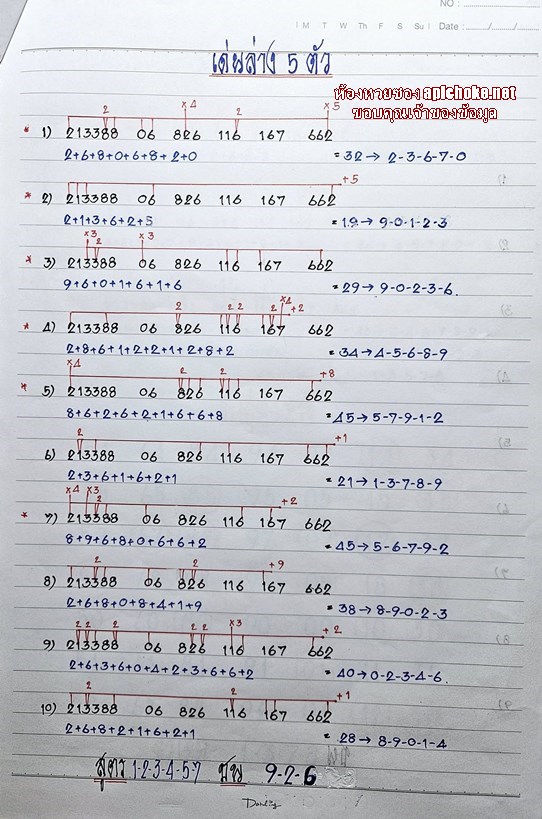 NO :
M T W Th F S Su Date : / /
เด่นล่าง 5 ตัว
ห้องหวยซอง apichoke.net
ขอบคุณเจ้าของข้อมูล
2 x4 2 x5
* 1) 213388 06 826 116 167 662
2+6+8+0+6+8+2+0 = 32 → 2-3-6-7-0
+5
* 2) 213388 06 826 116 167 662
2+1+3+6+2+5 = 19 → 9-0-1-2-3
x3 2 x3
* 3) 213388 06 826 116 167 662
9+6+0+1+6+1+6 = 29 → 9-0-2-3-6.
2 2 2 2 x4 +2
* 4) 213388 06 826 116 167 662
2+8+6+1+2+2+1+2+8+2 = 34 → 4-5-6-8-9
x4 2 2 +8
* 5) 213388 06 826 116 167 662
8+6+2+6+2+1+6+6+8 = 45 → 5-7-9-1-2
2 +1
6) 213388 06 826 116 167 662
2+3+6+1+6+2+1 = 21 → 1-3-7-8-9
x4 x3 2 +2
* 7) 213388 06 826 116 167 662
8+9+6+8+0+6+6+2 = 45 → 5-6-7-9-2
2 2 +9
8) 213388 06 826 116 167 662
2+6+8+0+8+4+1+9 = 38 → 8-9-0-2-3
2 2 2 2 2 x3 +2
9) 213388 06 826 116 167 662
2+6+3+6+0+4+2+3+6+6+2 = 40 → 0-2-3-4-6.
2 2 +1
10) 213388 06 826 116 167 662
2+6+8+2+1+6+2+1 = 28 → 8-9-0-1-4
สูตร 1-2-3-4-5-7 ชน 9-2-6